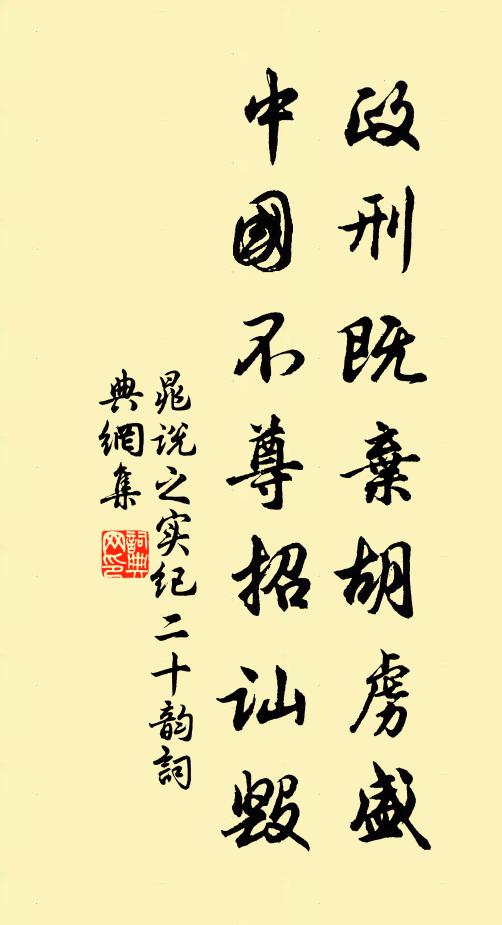 政刑既棄胡虜盛
中國不尊招訕毀
晁说之实纪二十韵詞
典網集
詞典
网印